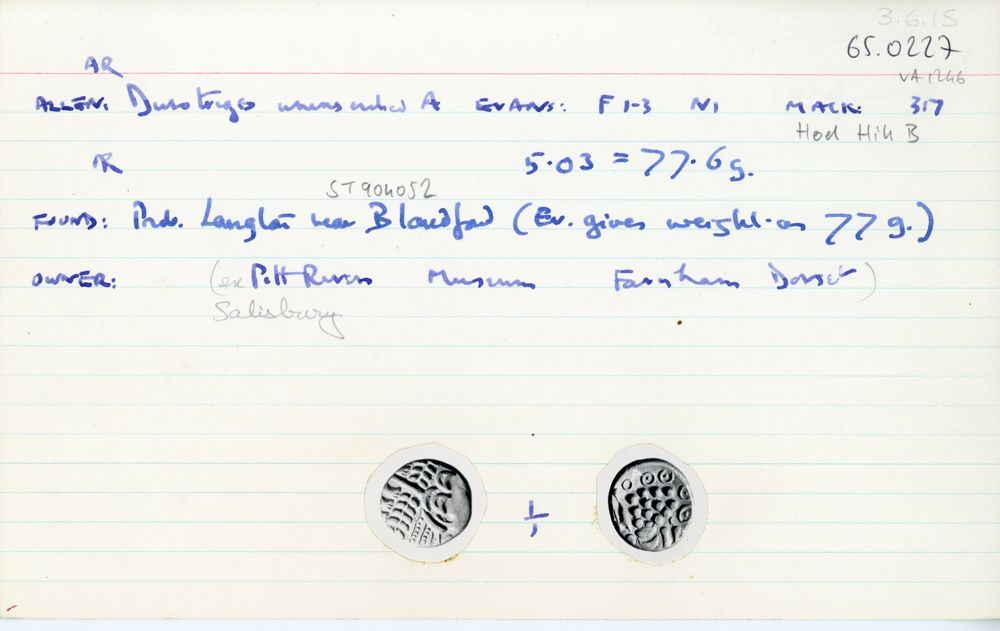 3.6.15
65.0227
AR
VA 1246
ALLEN: Durotriges uninscribed A EVANS: F 1-3 N1 MACK: 317
Hod Hill B
AR 5.03 = 77.6 g.
ST904052
FOUND: Prob. Langton near Blandford (Ev. gives weight as 77 g.)
OWNER: (ex Pitt Rivers Museum Farnham Dorset)
Salisbury
1/1